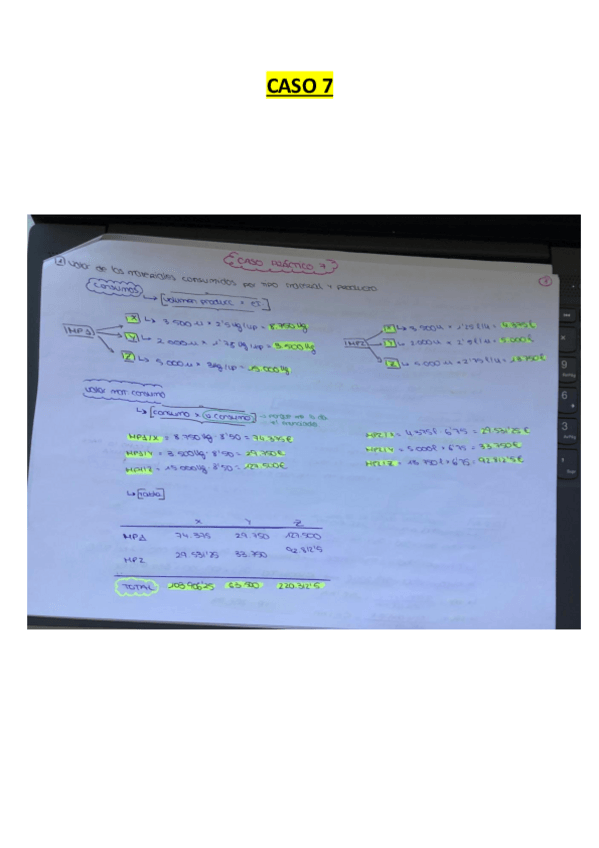 CASO 7
CASO PRÁCTICO 7
1 Valor de los materiales consumidos por tipo material y producto
Consumos
↳ [Volumen producc × et]
MP1
X ↳ 3 500 u × 2'5 kg/up = 8.750 kg
Y ↳ 2 000 u × 1'75 kg/up = 3.500 kg
Z ↳ 5 000 u × 3kg/up = 15 000 kg
MP2
↳ 3 500 u × 1'25 l/u = 4.375 l
Y ↳ 2000 u × 2'5 l/u = 5.000 l
Z ↳ 5 000 u × 2'75 l/u = 13.750 l
Valor mat. consumo
↳ [consumo × consumo]
MP1/X = 8 750 kg · 8'50 = 74.375 €
MP1/Y = 3 500 kg · 8'50 = 29.750 €
MP1/Z = 15 000 kg · 8'50 = 127.500 €
MP2/X = 4375 l · 6'75 = 29.531'25 €
MP2/Y = 5.000 l × 6'75 = 33 750 €
MP2/Z = 13 750 l × 6'75 = 92.812'5 €
↳ [Tabla]
X Y Z
MP1 74.375 29.750 127.500
MP2 29.531'25 33.750 92.812'5
TOTAL 103.906'25 63.500 220.312'5